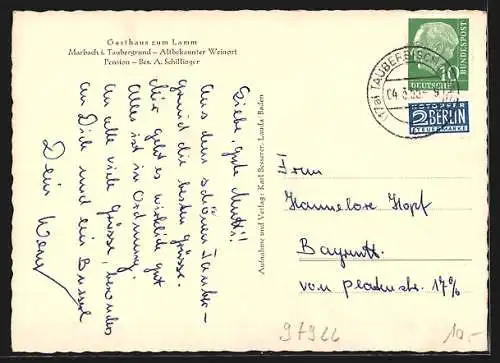 Gasthaus zum Lamm
Marbach i. Taubergrund – Altbekannter Weinort
Pension – Bes. A. Schillinger
Liebe, gute Mutti!
Aus dem schönen Tauber-
grund die besten Grüsse.
Mir geht es wirklich gut
Alles ist in Ordnung.
An alle viele Grüsse, besonders
an Dich und ein Busserl
Dein Werner
Aufnahme und Verlag: Karl Besserer, Lauda/Baden
(17a) TAUBERBISCH
04.8.55
10
DEUTSCHE
BUNDESPOST
NOTOPFER
2 BERLIN
STEUERMARKE
Frau
Hannelore Hopf
Bayreuth
von Platenstr. 17
97922
10.-